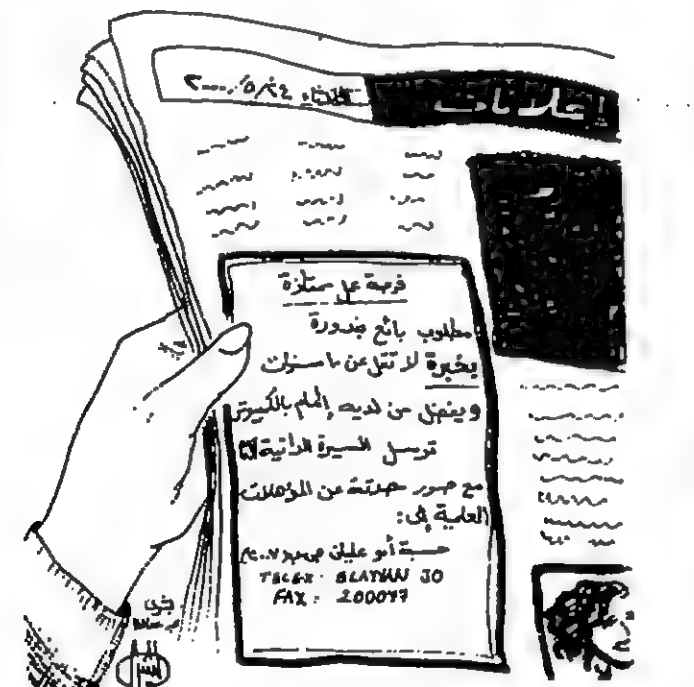 إعلانات
الثلاثاء ٢٤/٥/٢٠٠٠
فرصة عمل ممتازة
مطلوب بائع بندورة
بخبرة لا تقل عن ١٠ سنوات
ويفضل من لديه إلمام بالكمبيوتر
ترسل السيرة الذاتية
مع صور مصدقة عن المؤهلات
العلمية إلى:
حسبة أبو عليان
TELEX: ELAYYAN JO
FAX: 200077